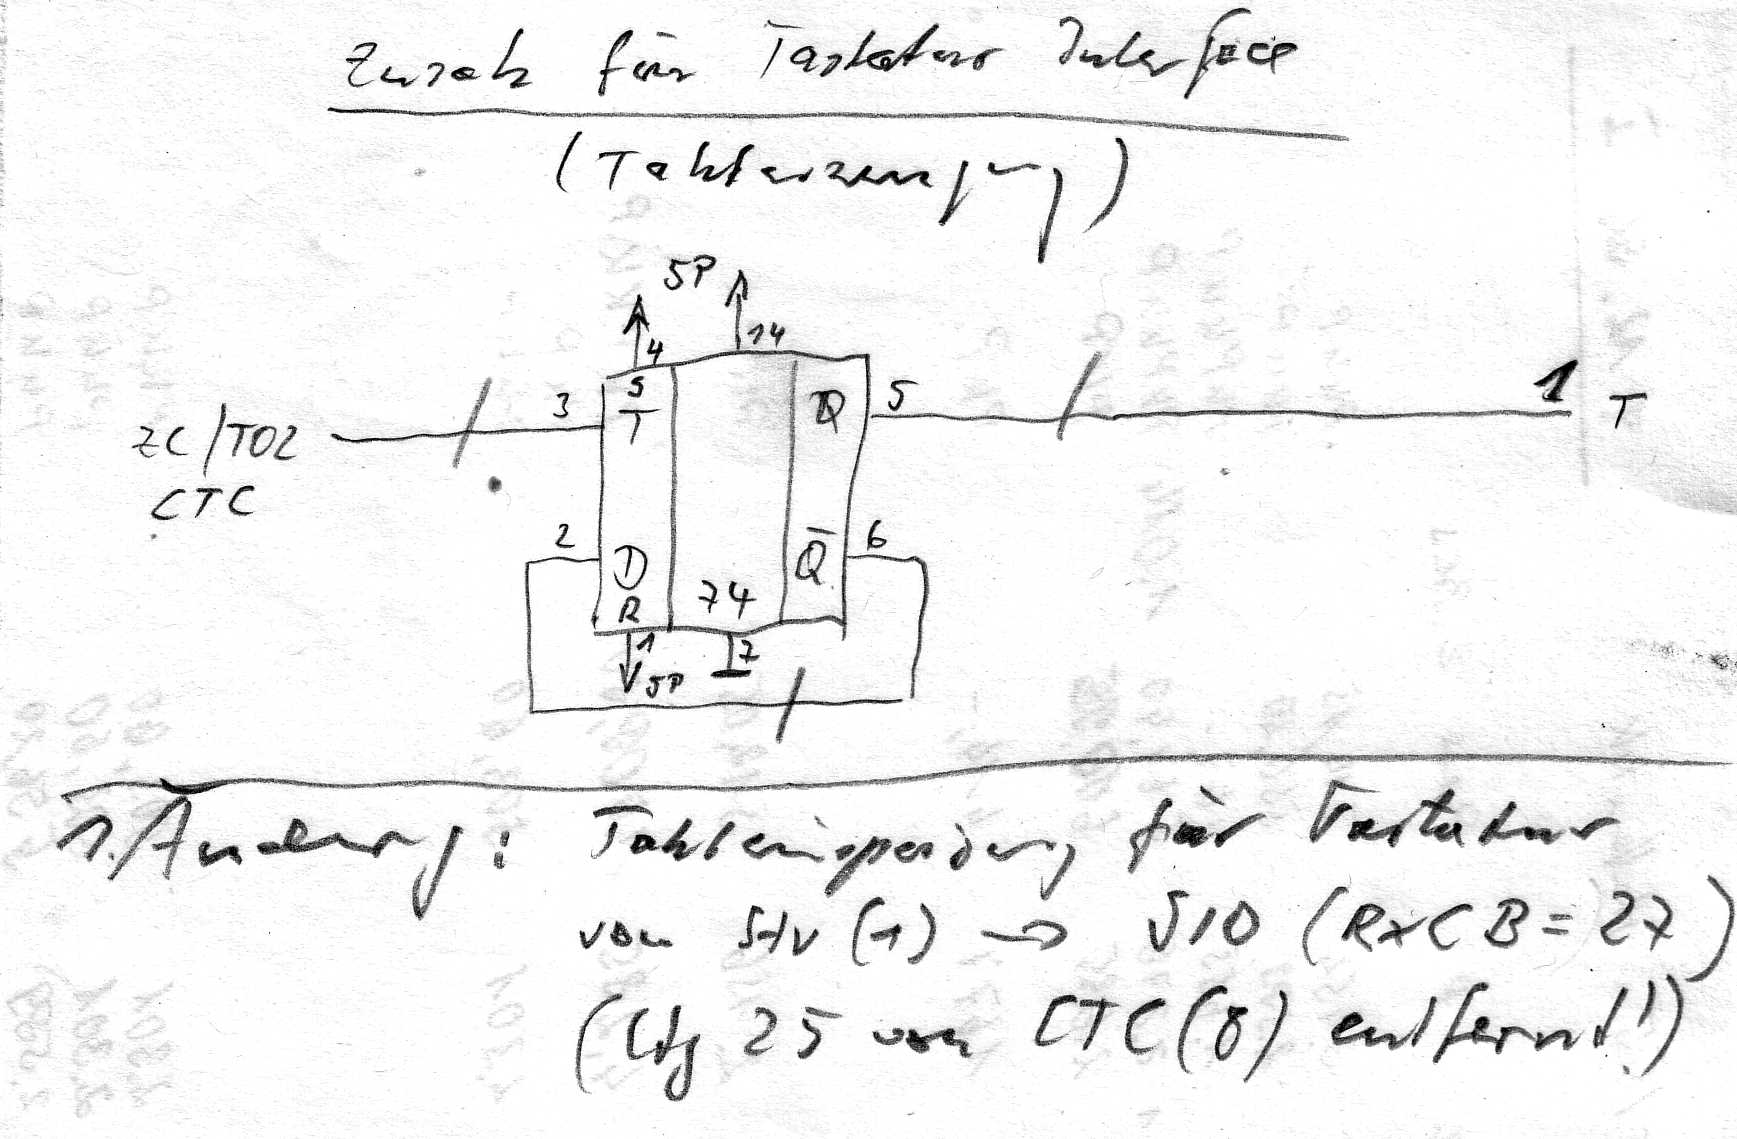 Zusatz für Tastatur Interface
(Takterzeugung)
5P
4 14
3 S T Q 5 1 T
ZC/TO2
CTC
2 D Q̅ 6
R 74
1 7
5P
1. Änderung: Takteinspeisung für Tastatur
von Stv (1) → SIO (RxCB = 27)
(Ltg 25 von CTC (8) entfernt!)